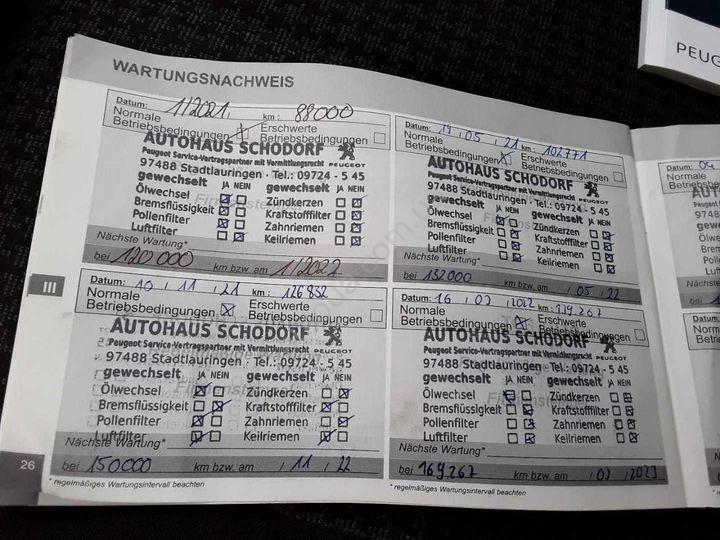 PEUG
WARTUNGSNACHWEIS
Datum: 1/2021 km: 88000
Normale Betriebsbedingungen
Erschwerte Betriebsbedingungen
AUTOHAUS SCHODORF
PEUGEOT
Peugeot Service-Vertragspartner mit Vermittlungsrecht
97488 Stadtlauringen · Tel.: 09724 - 5 45
gewechselt JA NEIN gewechselt JA NEIN
Ölwechsel Zündkerzen
Bremsflüssigkeit Kraftstofffilter
Pollenfilter Zahnriemen
Luftfilter Keilriemen
Nächste Wartung*
bei 120000 km bzw. am 1/2022
Datum: 19.05.21 102771
Normale Betriebsbedingungen
Erschwerte Betriebsbedingungen
AUTOHAUS SCHODORF
PEUGEOT
Peugeot Service-Vertragspartner mit Vermittlungsrecht
97488 Stadtlauringen · Tel.: 09724 - 5 45
gewechselt JA NEIN gewechselt JA NEIN
Ölwechsel Zündkerzen
Bremsflüssigkeit Kraftstofffilter
Pollenfilter Zahnriemen
Luftfilter Keilriemen
Nächste Wartung*
bei 132000 km bzw. am / 05 / 22
III
Datum: 10 / 11 / 21 126852
Normale Betriebsbedingungen
Erschwerte Betriebsbedingungen
AUTOHAUS SCHODORF
PEUGEOT
Peugeot Service-Vertragspartner mit Vermittlungsrecht
97488 Stadtlauringen · Tel.: 09724 - 5 45
gewechselt JA NEIN gewechselt JA NEIN
Ölwechsel Zündkerzen
Bremsflüssigkeit Kraftstofffilter
Pollenfilter Zahnriemen
Luftfilter Keilriemen
Nächste Wartung*
bei 150000 km bzw. am / 11 / 22
Datum: 16 / 03 / 2022 139.267
Normale Betriebsbedingungen
Erschwerte Betriebsbedingungen
AUTOHAUS SCHODORF
PEUGEOT
Peugeot Service-Vertragspartner mit Vermittlungsrecht
97488 Stadtlauringen · Tel.: 09724 - 5 45
gewechselt JA NEIN gewechselt JA NEIN
Ölwechsel Zündkerzen
Bremsflüssigkeit Kraftstofffilter
Pollenfilter Zahnriemen
Luftfilter Keilriemen
Nächste Wartung*
bei 169.267 km bzw. am / 03 / 2023
26
* regelmäßiges Wartungsintervall beachten
* regelmäßiges Wartungsintervall beachten
Datum: 04
Normale